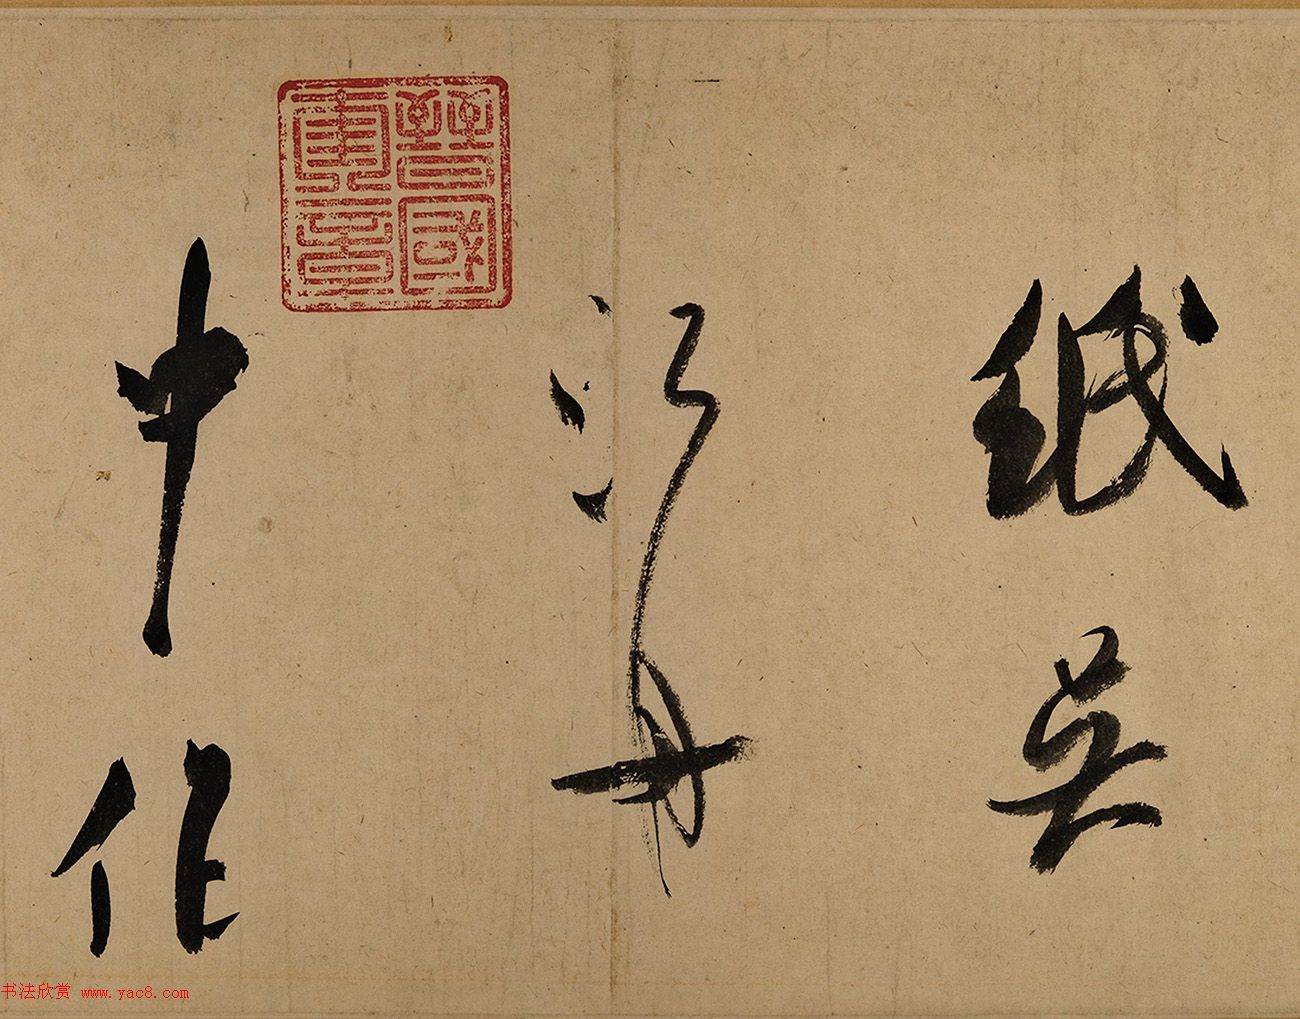 紙吳
江舟
中作
书法欣赏 www.yac8.com